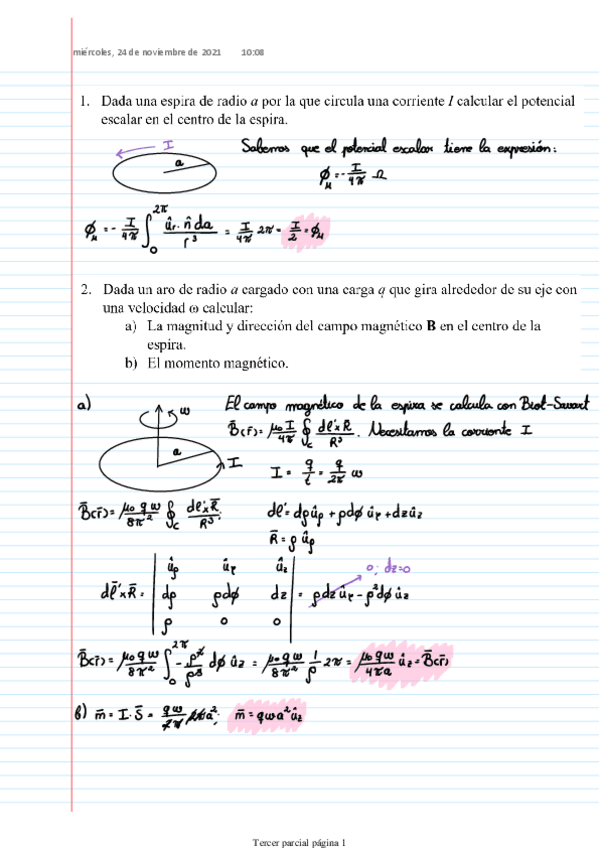 miércoles, 24 de noviembre de 2021 10:08
1. Dada una espira de radio a por la que circula una corriente I calcular el potencial
escalar en el centro de la espira.
I
a
Sabemos que el potencial escalar tiene la expresión:
ϕ_μ = - I/4π Ω
ϕ_μ = - I/4π ∫₀^2π ûr · n̂ da / r³ = I/4π 2π = I/2 = ϕ_μ
2. Dado un aro de radio a cargado con una carga q que gira alrededor de su eje con
una velocidad ω calcular:
a) La magnitud y dirección del campo magnético B en el centro de la
espira.
b) El momento magnético.
a)
ω
a
I
El campo magnético de la espira se calcula con Biot-Savart
B̄(r̄) = μ₀ I/4π ∮_c dl̄'×R̄/R³. Necesitamos la corriente I
I = q/t = q/2π ω
B̄(r̄) = μ₀ q ω/8π² ∮_c dl̄'×R̄/R³;
dl̄' = dρûρ + ρdϕ ûr + dzûz
R̄ = ρ ûρ
dl̄'×R̄ = | ûρ ûr ûz |
| dρ ρdϕ dz | = ρdzûr - ρ²dϕ ûz
| ρ 0 0 |
0; dz=0
B̄(r̄) = μ₀ q ω/8π² ∫₀^2π - ρ²/ρ³ dϕ ûz = μ₀ q ω/8π² 1/ρ 2π = μ₀ q ω/4πa ûz = B̄(r̄)
b) m̄ = I · S̄ = qω/2π πa²; m̄ = qωa² ûz
Tercer parcial página 1